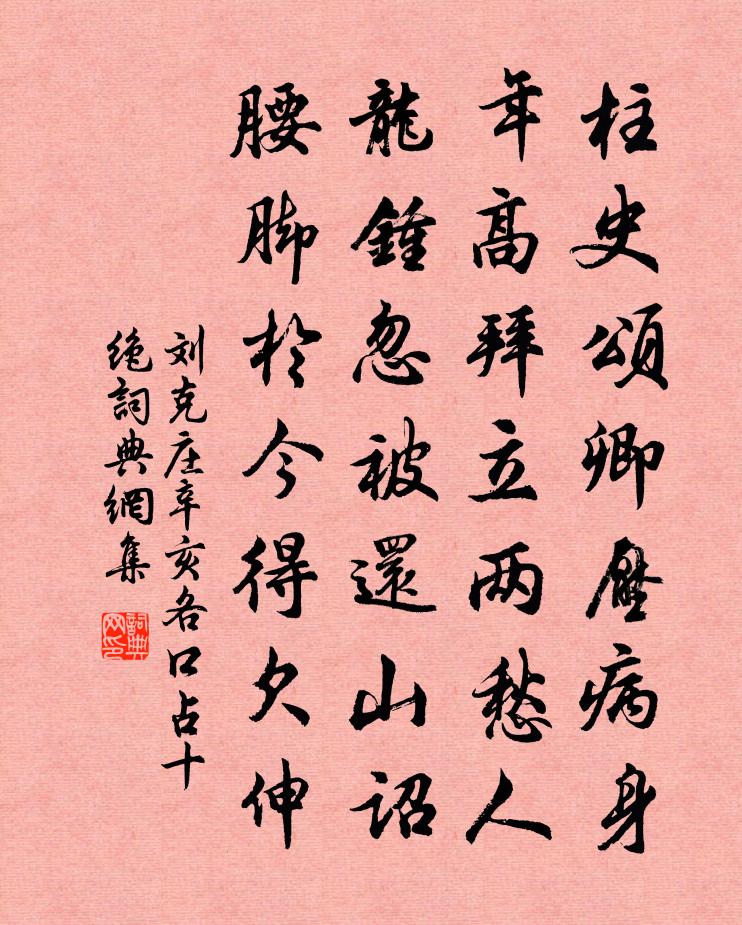 柱史頌卿壓病身
年高拜立两愁人
龍鍾忽被還山詔
腰脚於今得欠伸
刘克庄辛亥各口占十
绝詞典網集
詞典网印